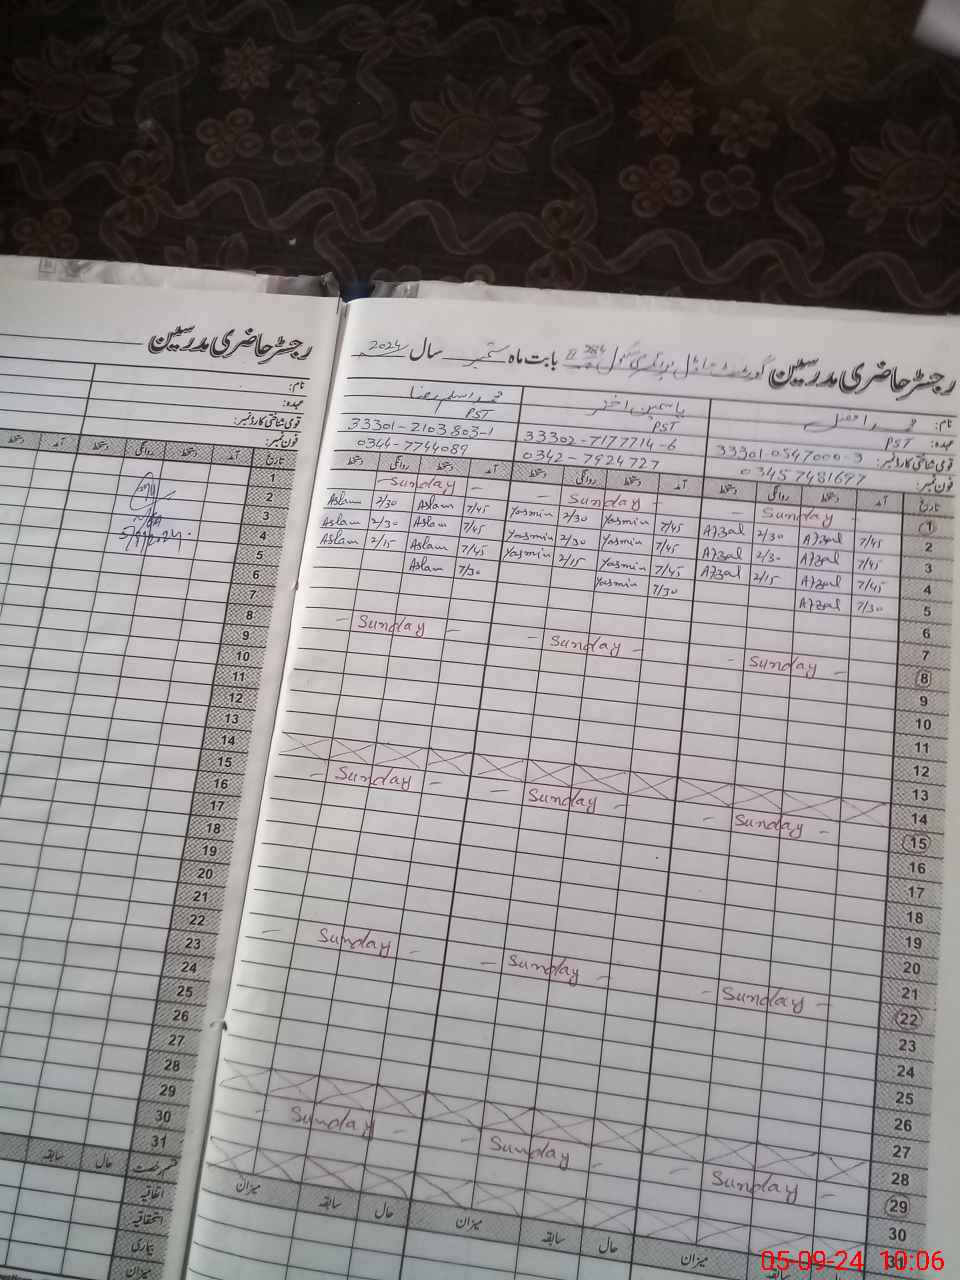 رجسٹر حاضری مدرسین
نام:
عہدہ:
قومی شناختی کارڈ نمبر:
فون نمبر:
تاریخ آمد دستخط روانگی دستخط آمد دستخط
1
2
3
4
5
6
7
8
9
10
11
12
13
14
15
16
17
18
19
20
21
22
23
24
25
26
27
28
29
30
31
قسم رخصت حال سابقہ
اتفاقیہ
استحقاقیہ
بیماری
میزان
5/9/2024
رجسٹر حاضری مدرسین گورنمنٹ ماڈل پرائمری سکول بابت ماہ ستمبر سال 2024
نام: محمد افضل یاسمین اختر محمد اسلم رضا
عہدہ: PST PST PST
قومی شناختی کارڈ نمبر: 33301-0547000-3 33302-7177714-6 33301-2103803-1
فون نمبر: 03457481697 0342-7924727 0344-7744089
تاریخ آمد دستخط روانگی دستخط آمد دستخط روانگی دستخط آمد دستخط روانگی دستخط
1 - Sunday - - Sunday - - Sunday -
2 7/45 Afzal 2/30 Afzal 7/45 Yasmin 2/30 Yasmin 7/45 Aslam 2/30 Aslam
3 7/45 Afzal 2/30 Afzal 7/45 Yasmin 2/30 Yasmin 7/45 Aslam 2/30 Aslam
4 7/45 Afzal 2/15 Afzal 7/45 Yasmin 2/15 Yasmin 7/45 Aslam 2/15 Aslam
5 7/30 Afzal 7/30 Yasmin 7/30 Aslam
6
7
8 - Sunday - - Sunday - - Sunday -
9
10
11
12
13
14
15 - Sunday - - Sunday - - Sunday -
16
17
18
19
20
21
22 - Sunday - - Sunday - - Sunday -
23
24
25
26
27
28
29 - Sunday - - Sunday - - Sunday -
30
31
میزان حال سابقہ میزان حال سابقہ میزان
05-09-24 10:06